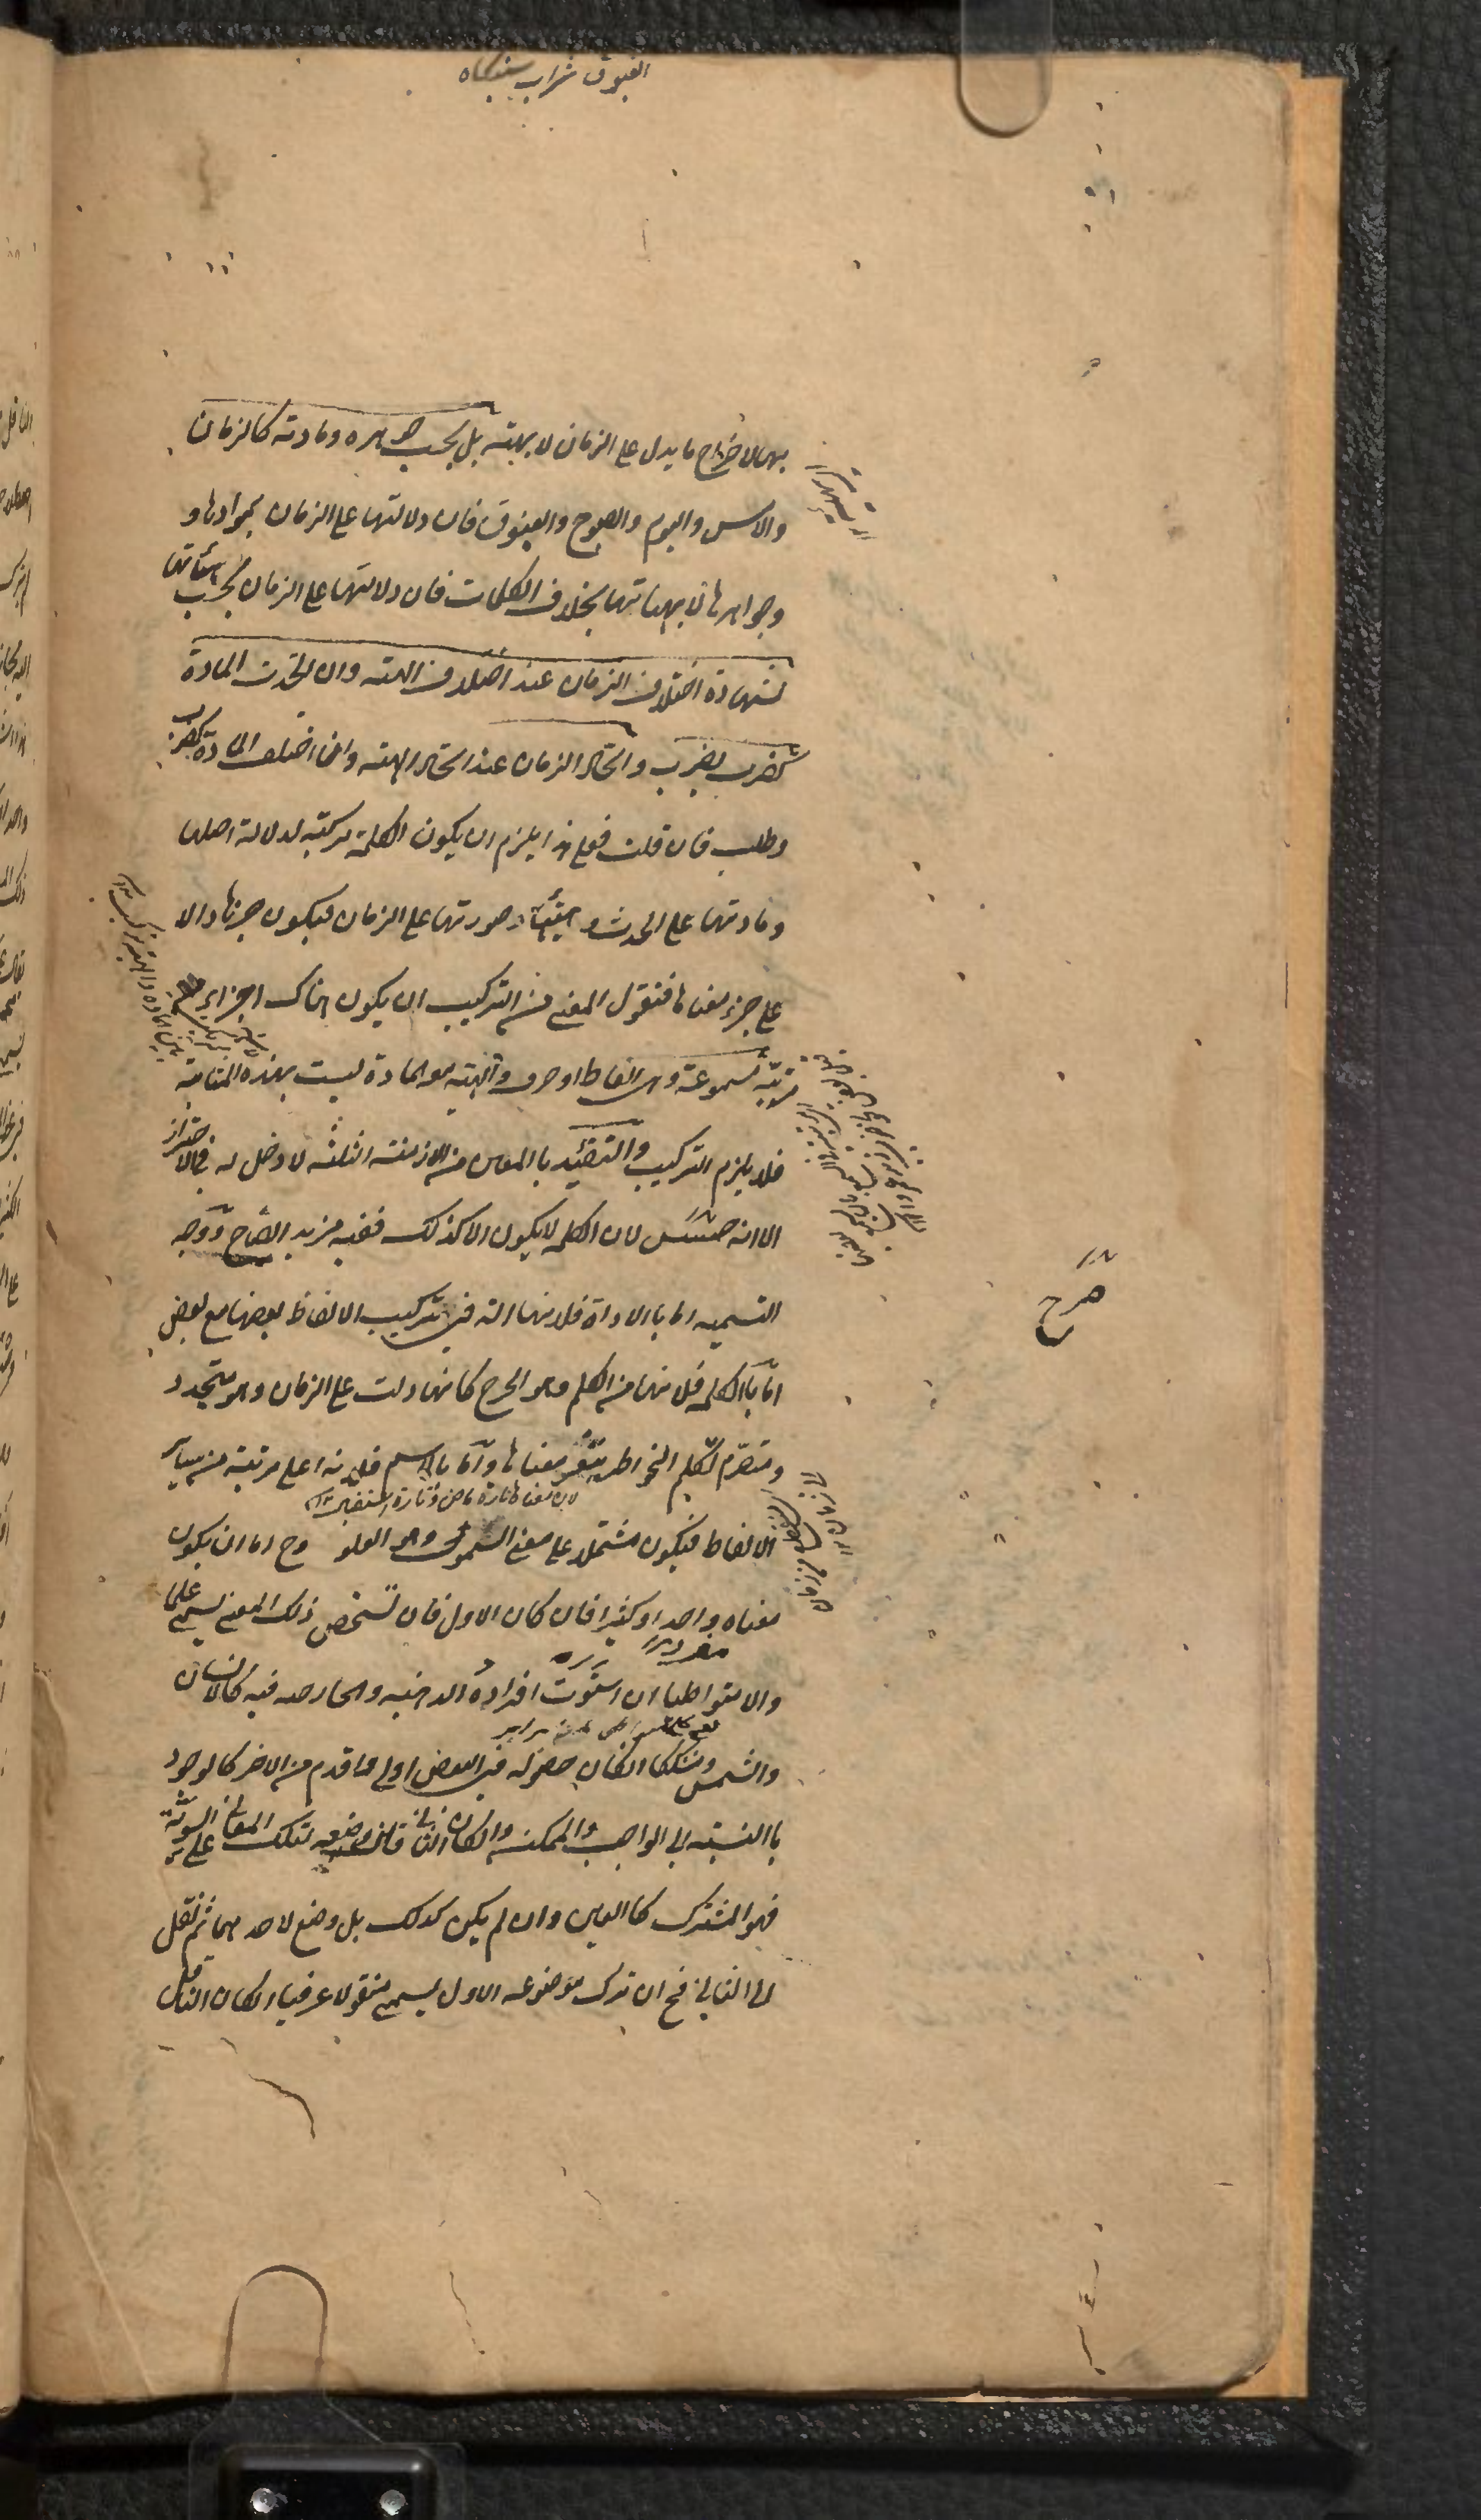 الغبوق شراب شبنكاه
بها لاخراج ما يدل على الزمان لا بهيئته بل بحسب جوهره ومادته كالزمان
والامس واليوم والصبوح والغبوق فان دلالتها على الزمان بموادها و
وجواهرها لا بهيئاتها بخلاف الكلمات فان دلالتها على الزمان بحسب هيئاتها
لشهادة اختلاف الزمان عند اختلاف الهيئة وان اتحدت المادة
كضرب يضرب واتحاد الزمان عند اتحاد الهيئة وان اختلف المادة كضرب
وطلب فان قلت فعلى هذا يلزم ان يكون الكلمة مركبة لدلالة اصلها
ومادتها على الحدث وهيئتها وصورتها على الزمان فيكون جزئها دالا
على جزء معناها فنقول المعنى من التركيب ان يكون هناك اجزاء
مرتبة مسموعة وهى الفاظ او حروف والهيئة مع المادة ليست بهذه المثابة
فلا يلزم التركيب والتقييد بالمعين من الازمنة الثلثة لا دخل له فى الاحتراز
الا انه حسن لان الكلمة لا يكون الا كذلك ففيه مزيد ايضاح ووجه
صرح
التسمية اما بالاداة فلانها الة فى تركيب الالفاظ بعضها مع بعض
اما بالكلمة فلانها من الكلم وهو الجرح كانها دلت على الزمان وهو متجدد
ومتصرم تكلم الخواطر بتغير معناها واما بالاسم فلانه اعلى مرتبة من سائر
لان معناها تارة ماض وتارة استقبال
الالفاظ فيكون مشتملا على معنى السمو وهو العلو وح اما ان يكون
معناه واحدا او كثيرا فان كان الاول فان تشخص ذلك المعنى يسمى علما
والا متواطيا ان استوت افراده الذهنية والخارجية فيه كالانسان
والشمس ومشككا ان كان حصوله فى البعض اولى واقدم من الاخر كالوجود
بالنسبة الى الواجب والممكن وان كان الثانى فان كان وضعه لتلك المعانى على السوية
فهو المشترك كالعين وان لم يكن كذلك بل وضع لاحدهما ثم نقل
الى الثانى فح ان ترك موضوعه الاول يسمى منقولا عرفيا ان كان الناقل